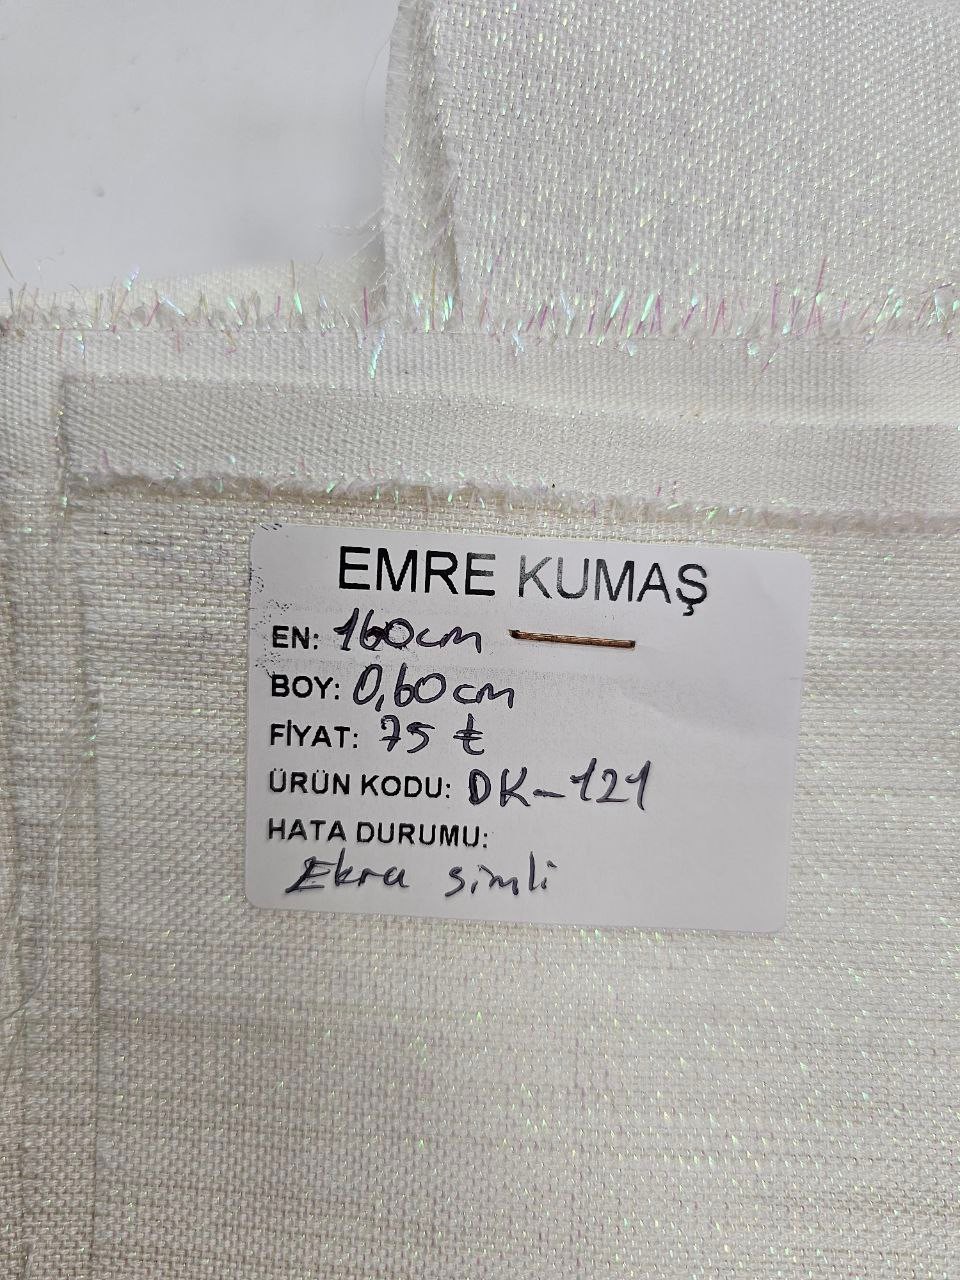 EMRE KUMAŞ
EN: 160cm
BOY: 0,60cm
FİYAT: 75 ₺
ÜRÜN KODU: DK-121
HATA DURUMU:
Ekra simli